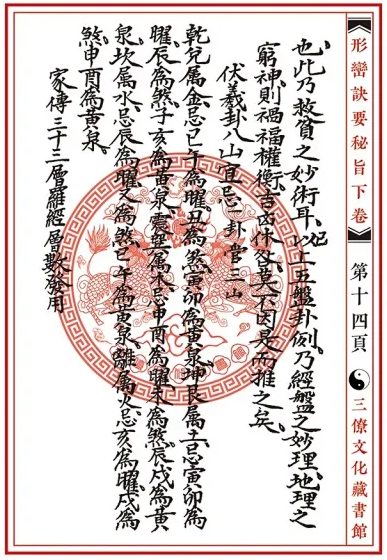 《形巒訣要秘旨下卷》 第十四頁 三僚文化藏書館
也、此乃救貧之妙術耳、以上五盤卦例、乃經盤之妙理、地理之
窮神、則禍福權衡、吉凶休咎、莫不因是而推之矣、
伏羲卦八山宜忌 一卦管三山
乾兌属金、忌巳午為曜、丑為煞、寅卯為黄泉、坤艮属土、忌寅卯為
曜、辰為煞、子亥為黄泉、震巽属木、忌申酉為曜、未為煞、辰戌為黄
泉、坎属水、忌辰為曜、為煞、巳午為黄泉、離属火、忌亥為曜、戌為
煞、申酉為黄泉、
家傳三十三層羅經層數發用